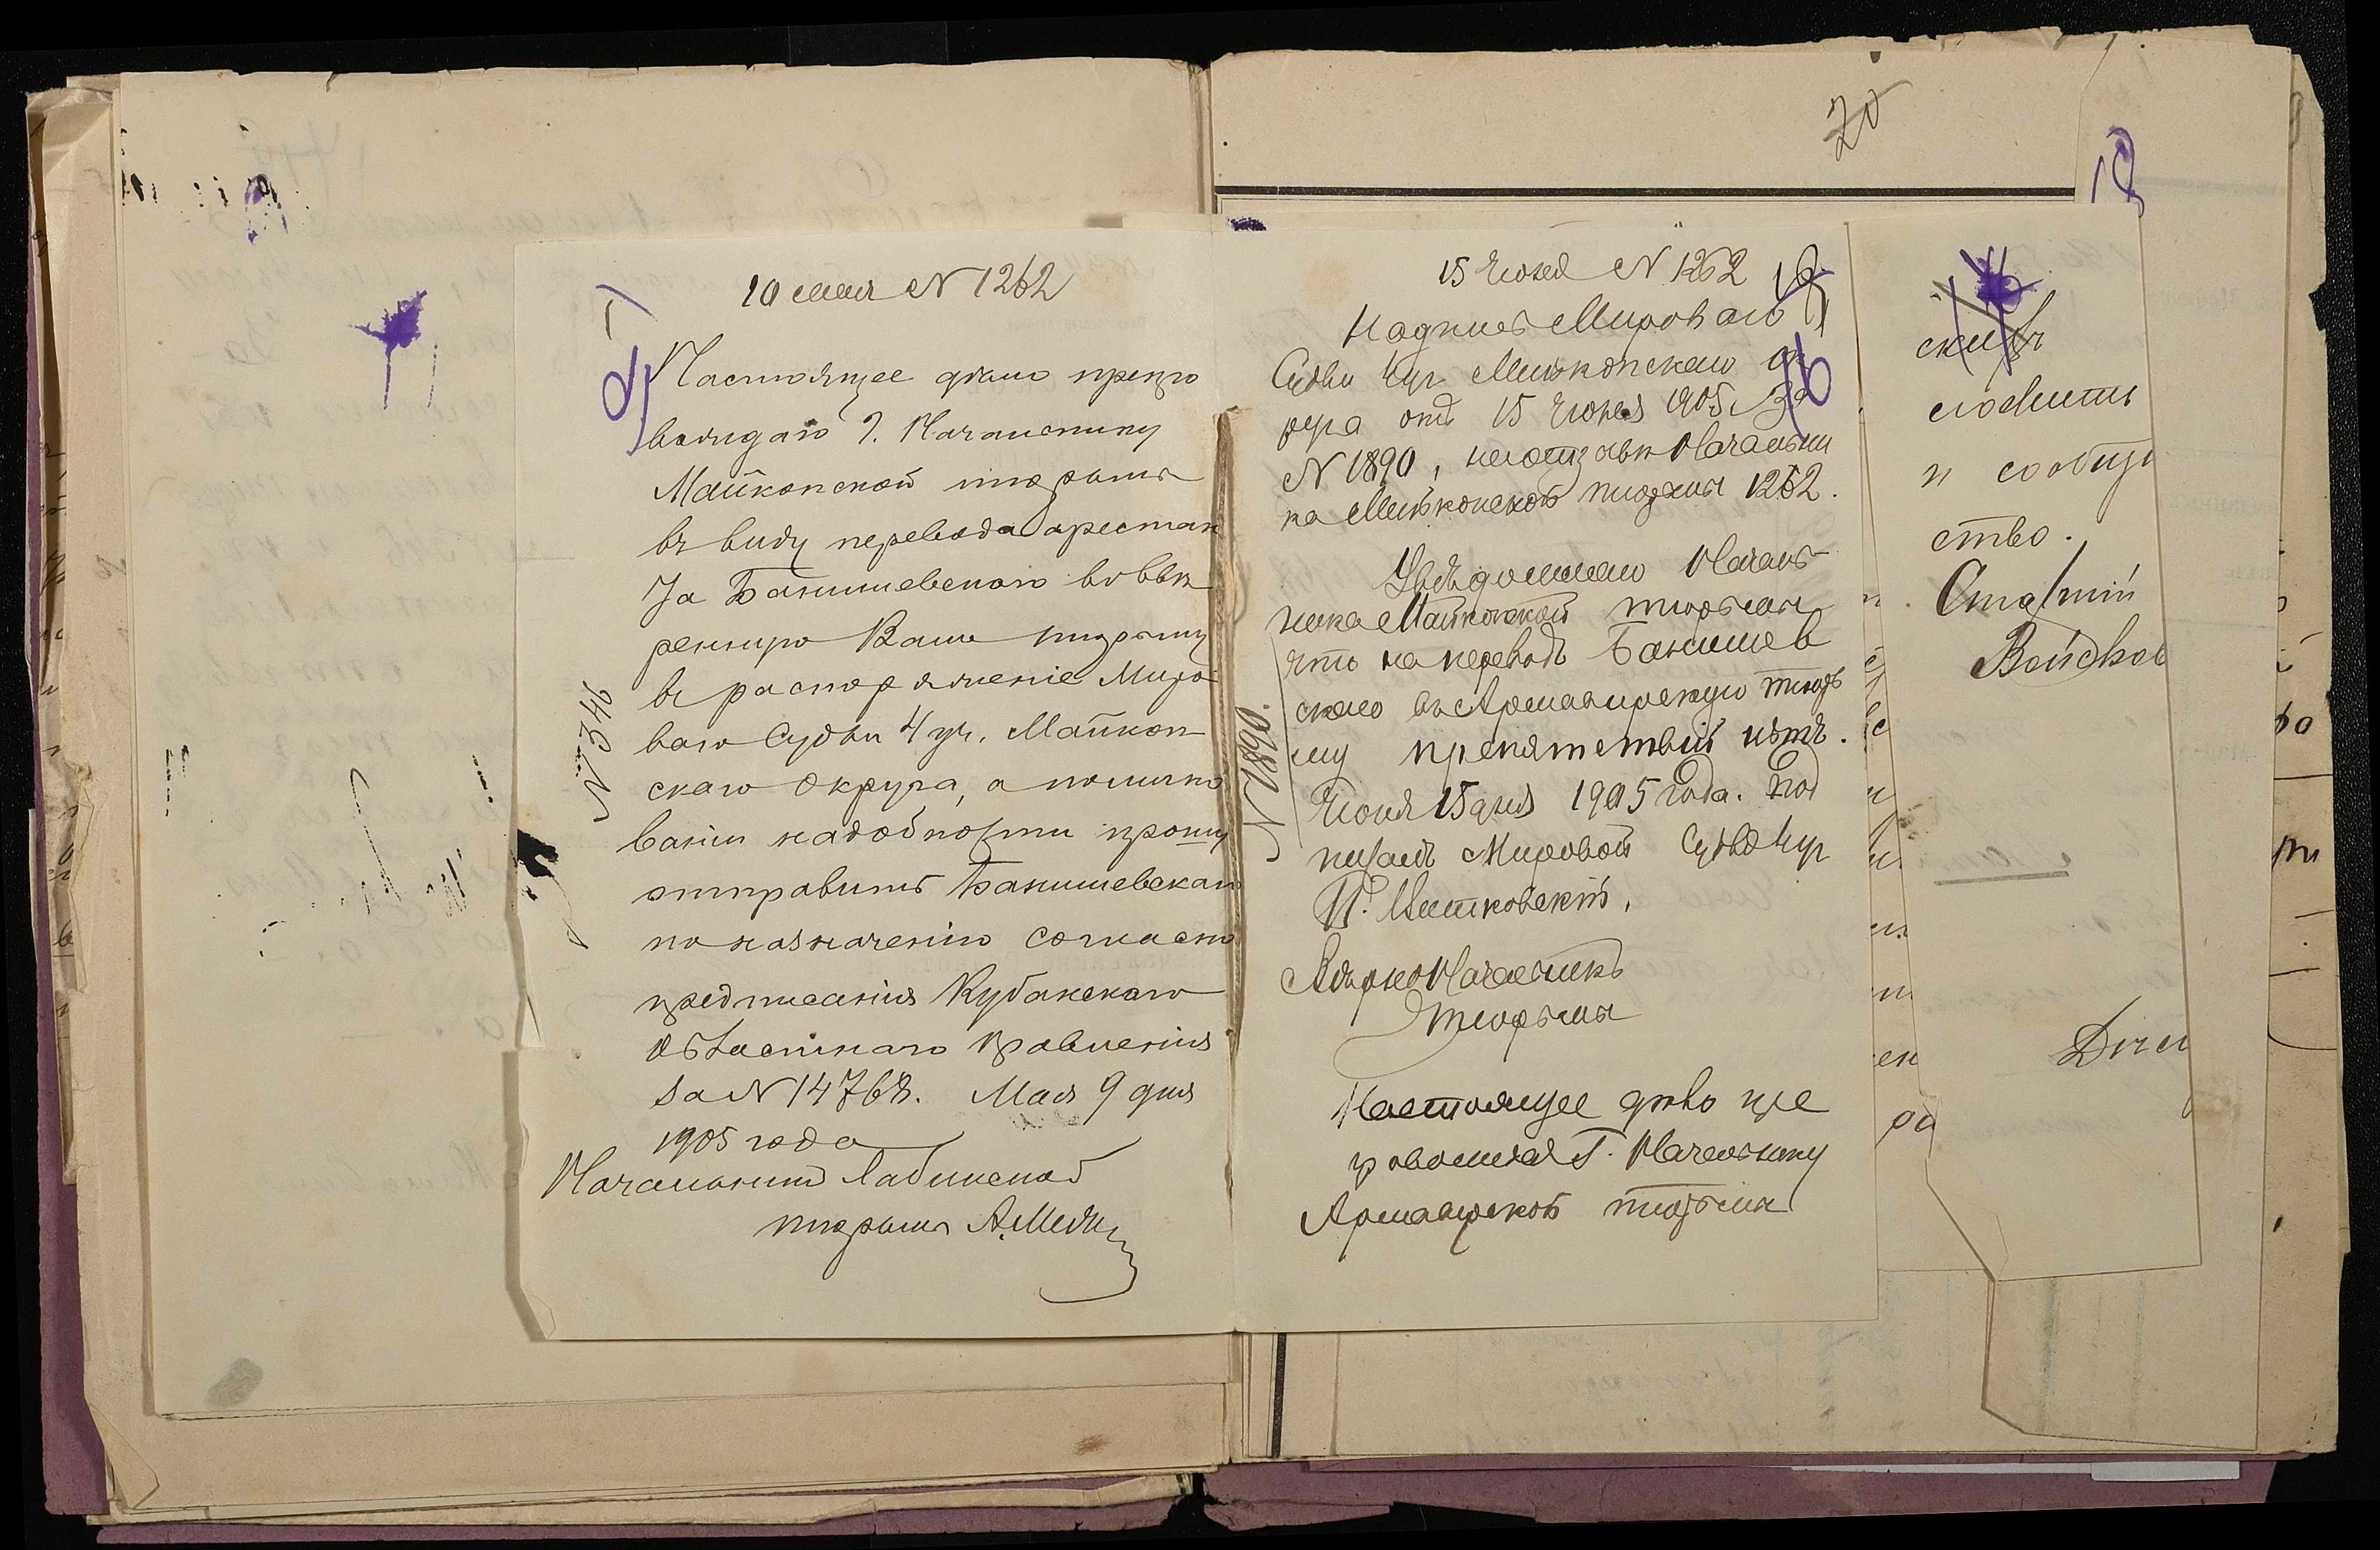 10 мая N 1262
Настоящее дѣло препро
вождаю Г. Начальнику
Майкопской тюрьмы
въ виду перевода арестан
та Банишевскаго во ввѣ
ренную Вамъ тюрьму
въ распоряженіе Миро
ваго Судьи 4 уч. Майкоп
скаго Округа, а по минo
ваніи надобности прошу
отправить Банишевскаго
по назначенію согласно
предписанія Кубанскаго
Областнаго Правленія
за N 14768. Мая 9 дня
1905 года
Начальникъ Лабинской
тюрьмы
N 346
20
18
15 Іюня N 1262
Надпись Мирового
Судьи 4 уч Майкопскаго Ок
руга отъ 15 Іюня 1905 За
N 1890, Начальни
ка Майкопской тюрьмы 1262.
Увѣдомляю Началь
ника Майкопской тюрьмы
что на переводъ Банишев
скаго въ Армавирскую тюрь
му препятствій нѣтъ.
Іюня 15 дня 1905 года. Под
писалъ Мировой Судья 4 уч
Вѣрно Начальникъ
тюрьмы
Настоящее дѣло пре
провождая Г. Начальнику
Армавирской тюрьмы
N 1890.
и сообщ
ство.
Войсков